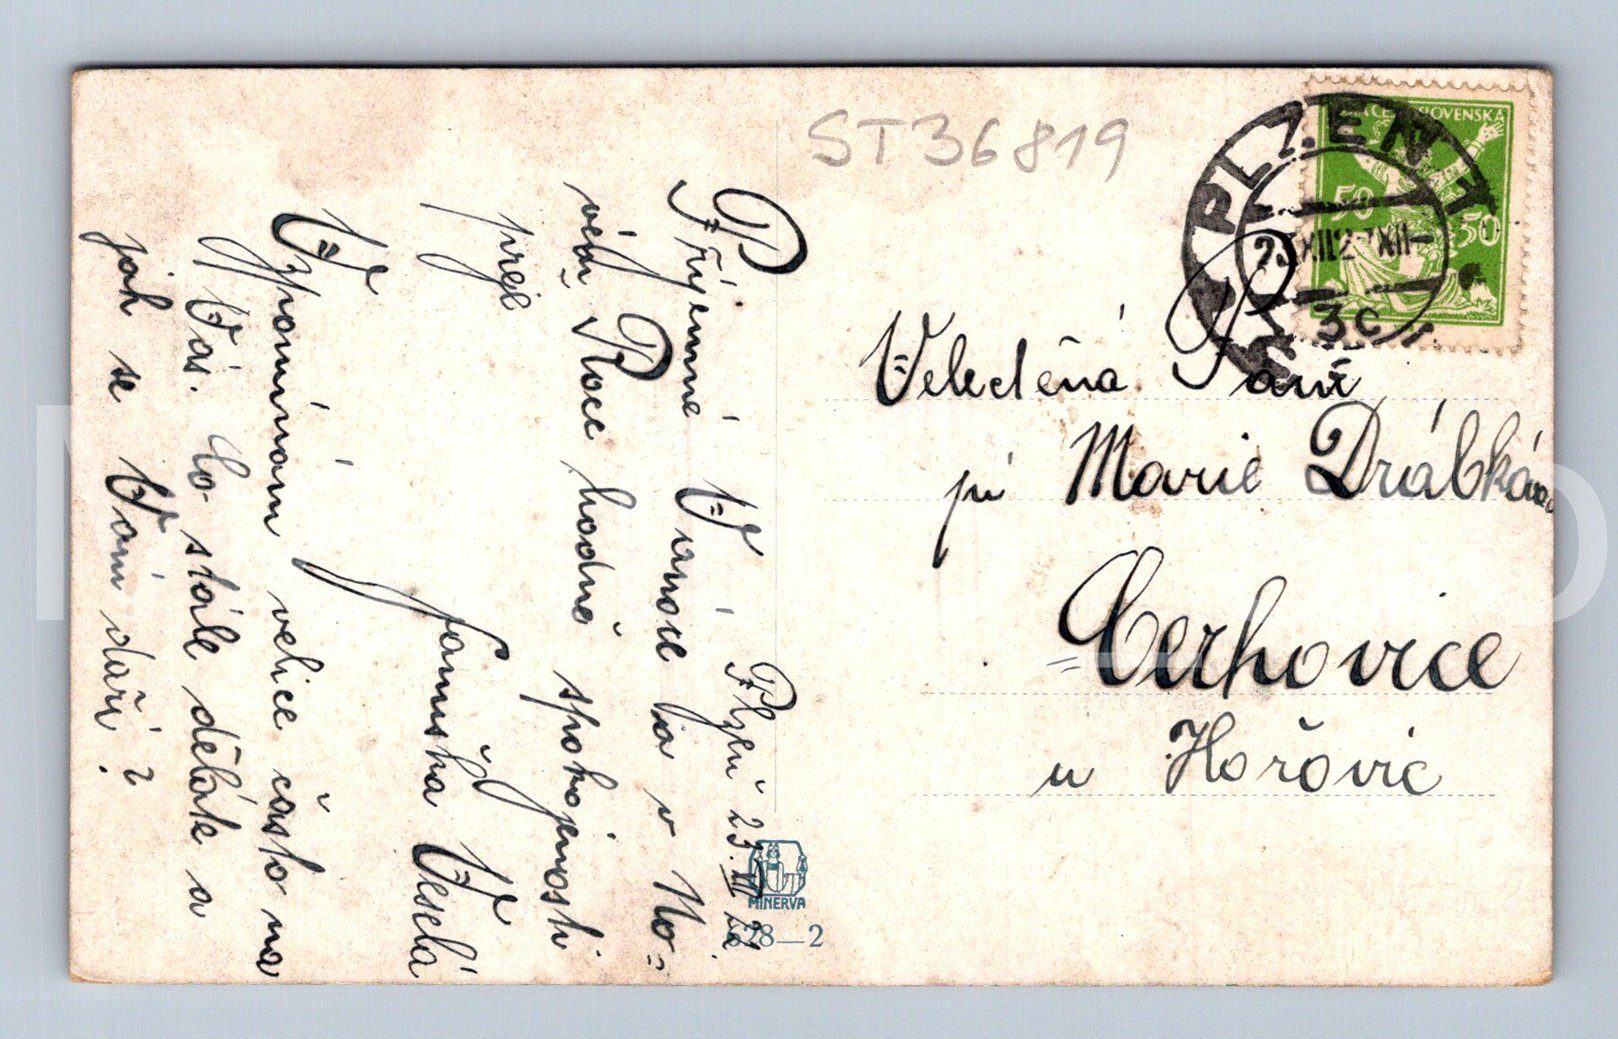 ST36819
PLZEŇ 1
3c
50
50
Plzeň 23.XII 22.
Příjemné Vánoce a v No-
vém Roce hodně spokojenosti
přeje
Jamska Veselá
Vzpomínám velice často na
Vás. Co stále děláte a
jak se Vám daří?
MINERVA
328—2
Veledčená Paní
pí Marie Drábková
Cerhovice
u Hořovic